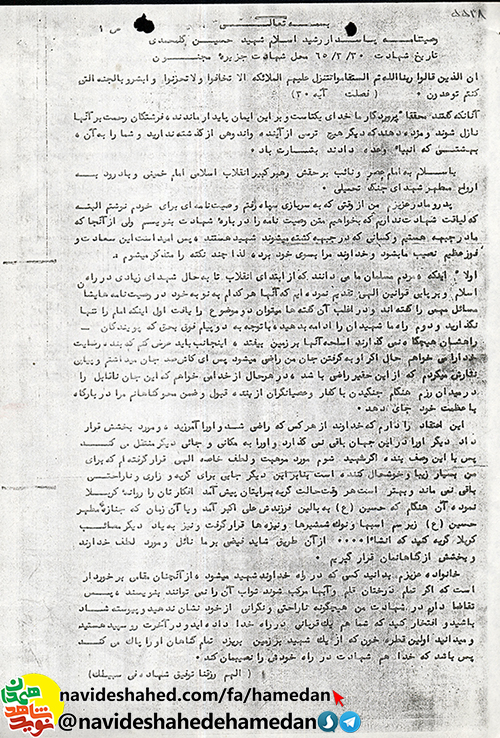 ۵۵۳۸
بسمه تعالی
ص ۱
وصیتنامه پاسدار رشید اسلام شهید حسین گلمحمدی
تاریخ شهادت ۶۵/۲/۳۰ محل شهادت جزیره مجنون
ان الذین قالوا ربنا الله ثم استقاموا تتنزل علیهم الملائکه الا تخافوا ولا تحزنوا و ابشرو بالجنه التی
کنتم توعدون ( فصلت آیه ۳۰ )
آنانکه گفتند محققا پروردگار ما خدای یکتاست و بر این ایمان پایدار ماندند فرشتگان رحمت بر آنها
نازل شوند و مژده دهند که دیگر هیچ ترسی از آینده و اندوهی از گذشته ندارید و شما را به آن
بهشتی که انبیاء وعده دادند بشارت باد ۰
با سلام به امام عصر و نائب بر حقش رهبر کبیر انقلاب اسلامی امام خمینی و با درود به
ارواح مطهر شهدای جنگ تحمیلی ۰
پدر و مادر عزیزم من از وقتی که به سربازی سپاه رفتم وصیت نامه ای برای خودم نوشتم البته
که لیاقت شهادت نداریم که بخواهم متن وصیت نامه را درباره شهادت بنویسم ولی از آنجا که
ما در جبهه هستیم و کسانی که در جبهه کشته میشوند شهید هستند پس امید است این سعادت و
فوز عظیم نصیب ما بشود و خداوند مرا بسوی خود برد لذا چند نکته را متذکر میشوم ۰
اولا" اینکه مردم مسلمان ما می دانند که از ابتدای انقلاب تا به حال شهدای زیادی در راه
اسلام و برپایی قوانین الهی تقدیم نموده ایم که آنها هر کدام به نوبه خود در وصیت نامه هایشان
مسائل مهمی را گفته اند و در اغلب آن گفته ها میتوان دو موضوع را یافت اول اینکه امام را تنها
نگذارید و دوم راه ما شهیدان را ادامه بدهید با توجه به دو پیام فوق بحق که پویندگان
راهشان هیچگاه نمی گذارند اسلحه آنها بر زمین بیفتد اینجانب باید عرض کنم که بنده رضایت
خدا را می خواهم حال اگر او به گرفتن جان من راضی میشود پس ای کاش صد جان میداشتم و بپایی
نثارش میکردم که از این حقیر راضی باشد در هر حال از خدا می خواهم که این جان ناقابل را
در میدان رزم هنگام جنگیدن با کفار و عصیانگران از بنده قبول و ضمن محو گناهانم مرا در بارگاه
با عظمت خود جای دهد ۰
این اعتقاد را دارم که خداوند از هر کس که راضی شد و او را آمرزید و مورد بخشش قرار
داد دیگر او را در این جهان باقی نمی گذارد و او را به مکانی و جائی دیگر منتقل می کند
پس با این وصف بنده اگر شهید شوم مورد موهبت و لطف خاصه الهی قرار گرفته ام که برای
من بسیار زیبا و خوشحال کننده است بنابر این دیگر جایی برای گریه و زاری و ناراحتی
باقی نمی ماند و بهتر است هر وقت حالت گریه برایتان پیش آمد افکارتان را روانه کربلا
نموده آن هنگام که حسین (ع) به بالین فرزندش علی اکبر آمد و یا آن زمان که جنازه مطهر
حسین (ع) زیر سم اسبها و نوک شمشیرها و نیزه ها قرار گرفت و نیز به یاد دیگر مصائب
کربلا گریه کنید که انشاء ا ۰۰۰۰ از آن طریق شاید فیضی بر ما نائل و مورد لطف خداوند
و بخشش از گناهانمان قرار گیریم
خانواده عزیزم بدانید کسی که در راه خداوند شهید میشود از آنچنان مقامی برخوردار
است که اگر تمام درختان قلم و آبها مرکب شوند ثواب آن را نمی توانند بنویسند پس
تقاضا دارم در شهادت من هیچگونه ناراحتی و نگرانی از خود نشان ندهید و پیوسته شاد
باشید و افتخار کنید که شما هم یک قربانی در راه خدا داده اید و در آخرت رو سپید هستید
و میدانید اولین قطره خون که از یک شهید بر زمین بریزد تمام گناهان او را پاک می کند
پس باشد که خدا هم شهادت در راه خودش را نصیبمان کند ۰
( اللهم رزقنا توفیق شهاده فی سبیلک )
نوید شاهد همدان
navideshahed.com/fa/hamedan
@navideshahedehamedan